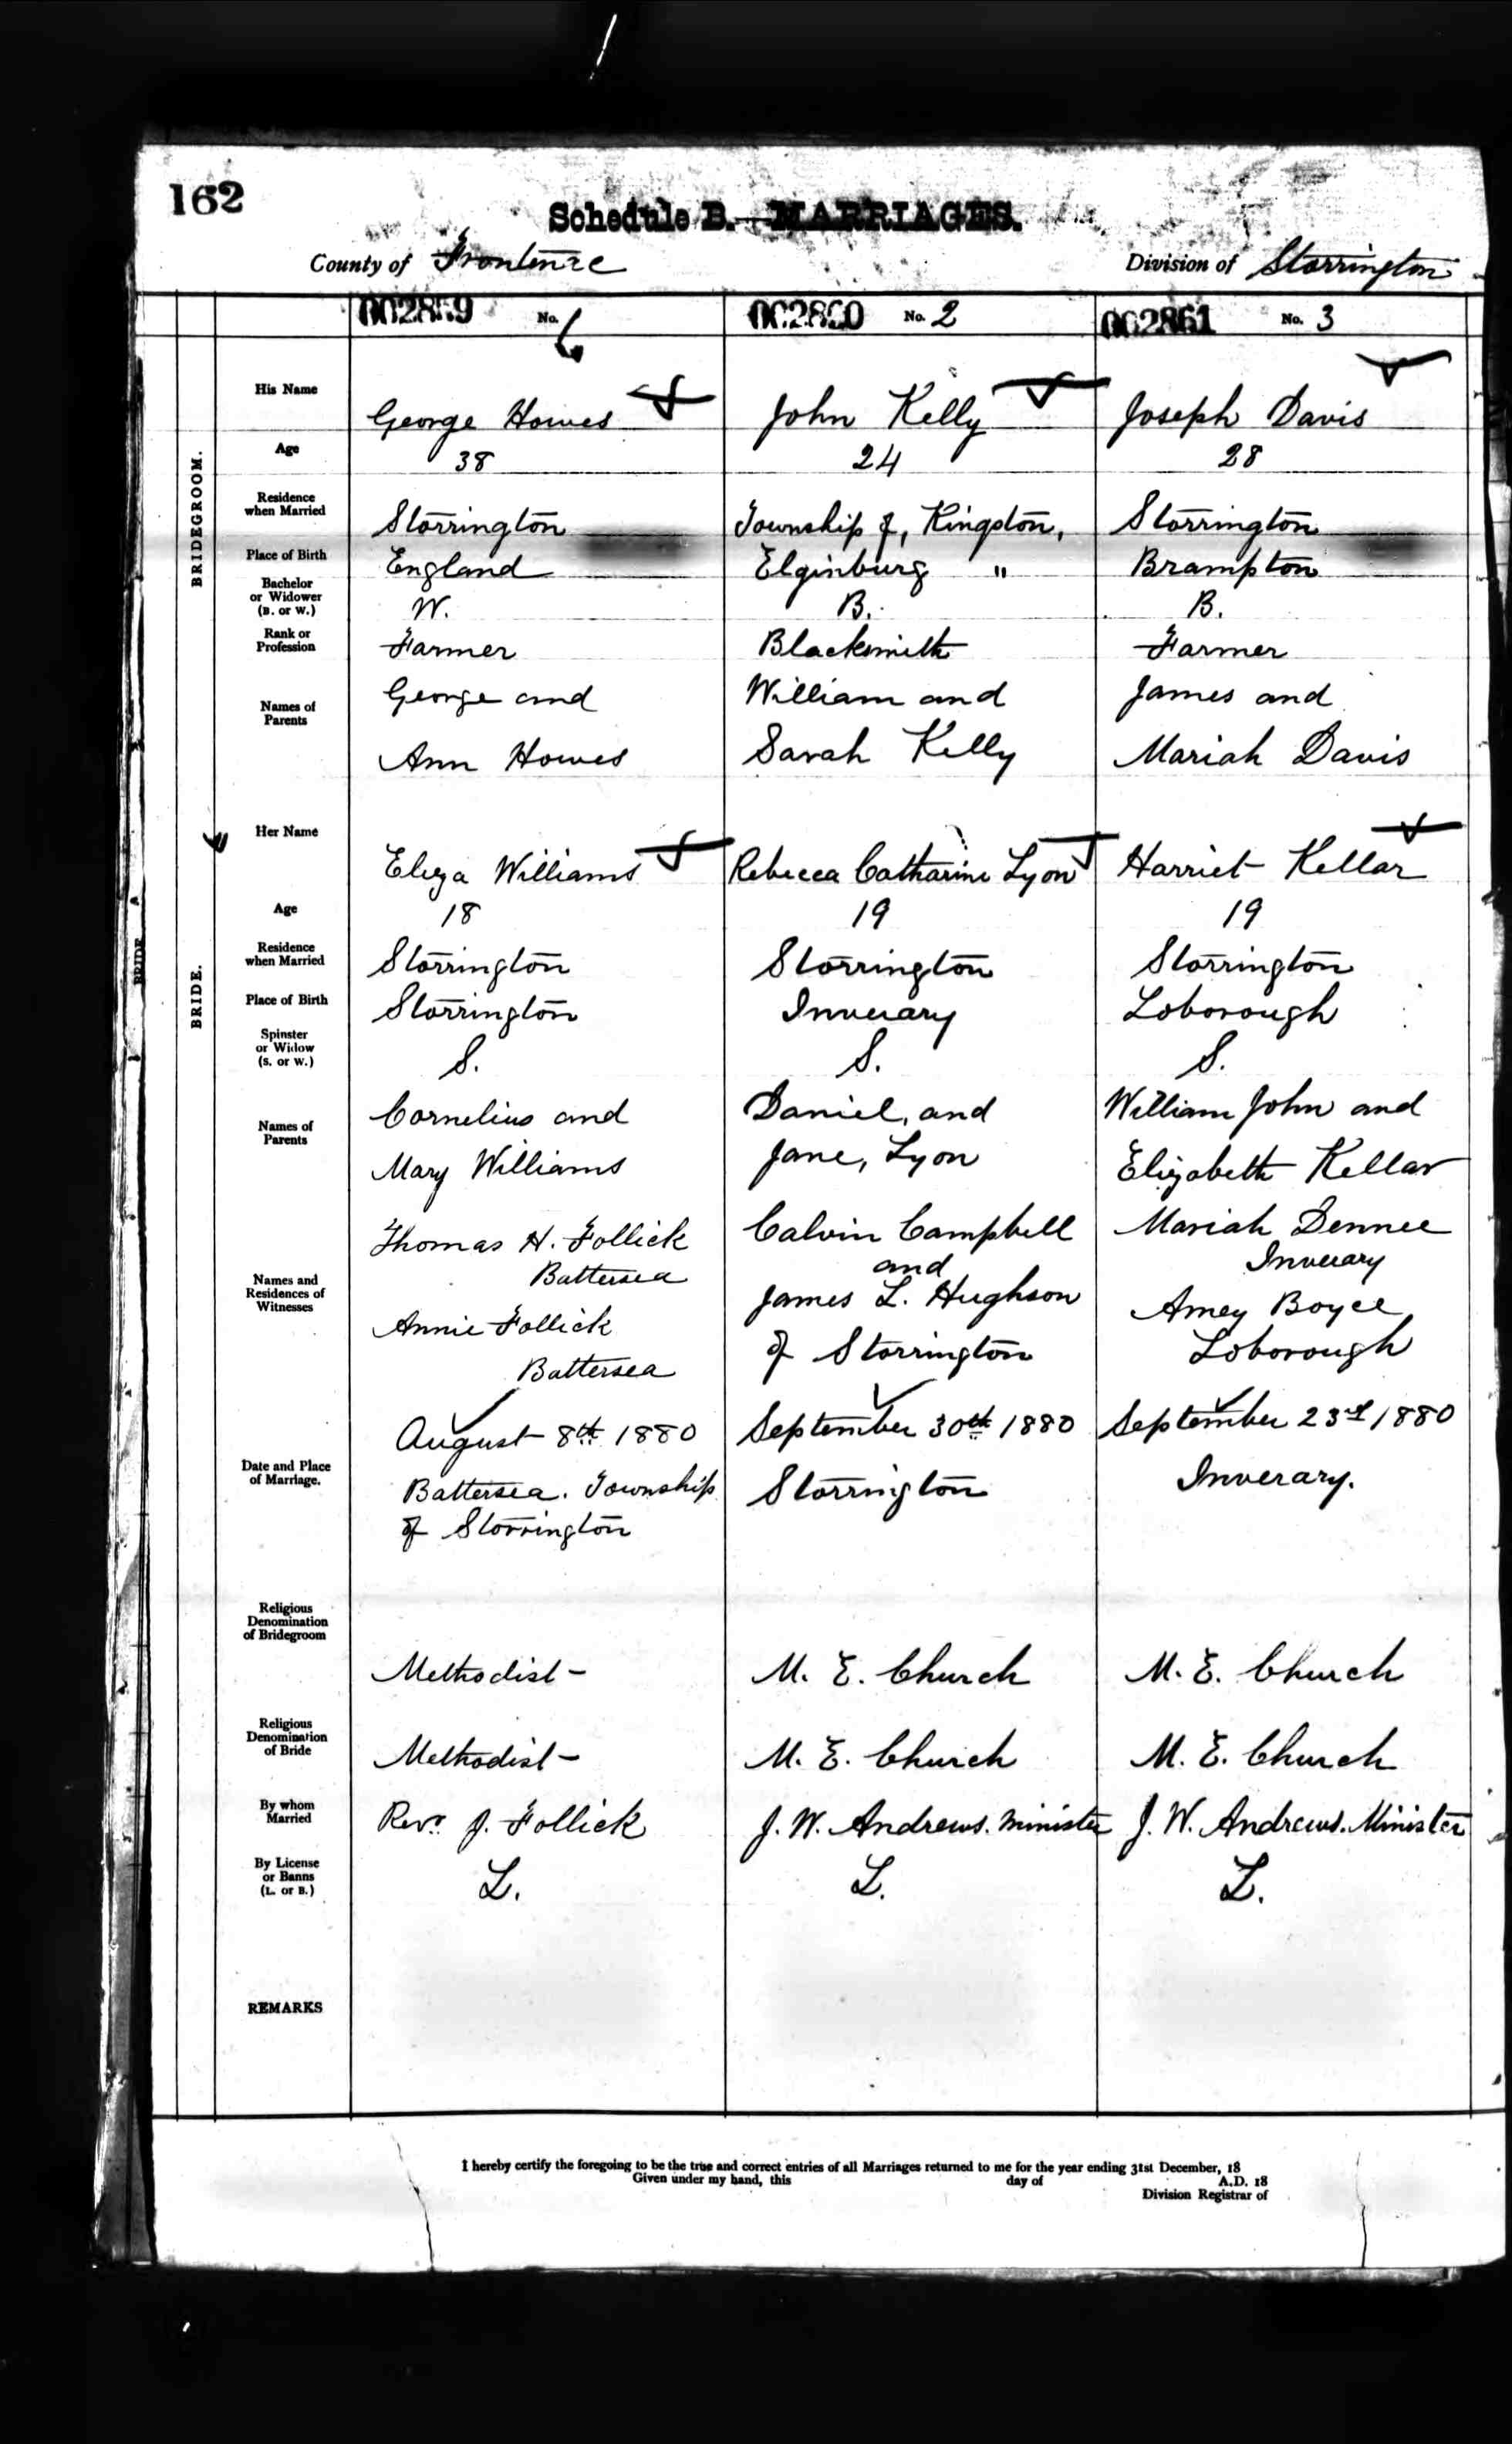 162
Schedule B.—MARRIAGES.
County of Frontenac Division of Storrington
002859 No. 1 002860 No. 2 002861 No. 3
BRIDEGROOM.
His Name George Howes John Kelly Joseph Davis
Age 38 24 28
Residence when Married Storrington Township of, Kingston, Storrington
Place of Birth England Elginburg " Brampton
Bachelor or Widower (B. or W.) W. B. B.
Rank or Profession Farmer Blacksmith Farmer
Names of Parents George and William and James and
Ann Howes Sarah Kelly Mariah Davis
BRIDE.
Her Name Eliza Williams Rebecca Catharine Lyon Harriet Kellar
Age 18 19 19
Residence when Married Storrington Storrington Storrington
Place of Birth Storrington Inverary Loborough
Spinster or Widow (S. or W.) S. S. S.
Names of Parents Cornelius and Daniel, and William John and
Mary Williams Jane, Lyon Elizabeth Kellar
Names and Residences of Witnesses
Thomas H. Follick Calvin Campbell Mariah Dennee
Battersea and Inverary
Annie Follick James L. Hughson Amey Boyce
Battersea of Storrington Loborough
Date and Place of Marriage. August 8th 1880 September 30th 1880 September 23rd 1880
Battersea. Township Storrington Inverary.
of Storrington
Religious Denomination of Bridegroom Methodist M. E. Church M. E. Church
Religious Denomination of Bride Methodist M. E. Church M. E. Church
By whom Married Revr. J. Follick J. W. Andrews. minister J. W. Andrews. Minister
By License or Banns (L. or B.) L. L. L.
REMARKS
I hereby certify the foregoing to be the true and correct entries of all Marriages returned to me for the year ending 31st December, 18
Given under my hand, this day of A.D. 18
Division Registrar of
BRIDE A